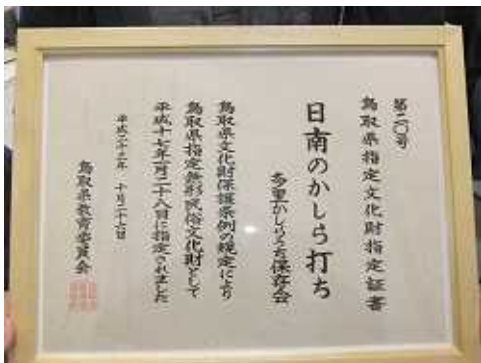 第二〇号
鳥取県指定文化財指定証書
日南のかしら打ち
多里かしらうち保存会
鳥取県文化財保護条例の規定により
鳥取県指定無形民俗文化財として
平成十七年一月二十八日に指定されました
平成二十三年 十月二十七日
鳥取県教育委員会